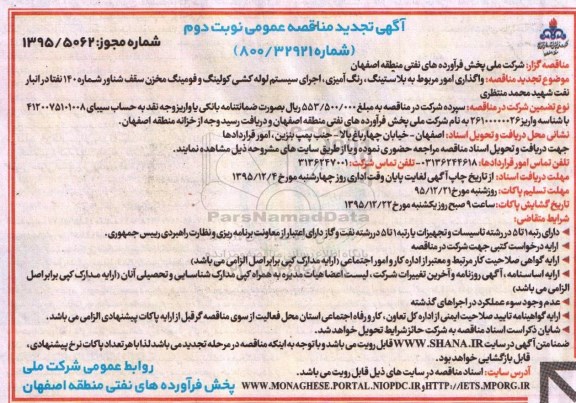 آگهی تجدید مناقصه عمومی نوبت دوم
(شماره ۸۰۰/۳۲۹۲۱)
شماره مجوز: ۱۳۹۵/۵۰۶۲
مناقصه گزار: شرکت ملی پخش فرآورده های نفتی منطقه اصفهان
موضوع تجدید مناقصه: واگذاری امور مربوط به بلاستینگ، رنگ آمیزی، اجرای سیستم لوله کشی کولینگ و فومینگ مخزن سقف شناور شماره ۱۴۰ نفتا در انبار
نفت شهید محمد منتظری
نوع تضمین شرکت در مناقصه: سپرده شرکت در مناقصه به مبلغ ۵۵۳/۵۰۰/۰۰۰ ریال بصورت ضمانتنامه بانکی یا واریز وجه نقد به حساب سیبای ۴۱۲۰۰۷۵۱۰۱۰۰۸
با شناسه واریز ۲۶۱۰۰۰۰۰۰۲۶ به نام شرکت ملی پخش فرآورده های نفتی منطقه اصفهان و دریافت رسید وجه از خزانه منطقه اصفهان.
نشانی محل دریافت و تحویل اسناد: اصفهان - خیابان چهارباغ بالا - جنب پمپ بنزین، امور قراردادها
جهت دریافت و تحویل اسناد مناقصه مراجعه حضوری نموده و یا از طریق سایت های مشروحه ذیل مشاهده نمایند.
تلفن تماس امور قراردادها: ۰۳۱۳۶۲۴۴۶۱۸- تلفن تماس شرکت: ۳۱۳۶۲۴۷۰۰۱
مهلت دریافت اسناد: از تاریخ چاپ آگهی لغایت پایان وقت اداری روز چهارشنبه مورخ ۱۳۹۵/۱۲/۴
مهلت تسلیم پاکات: روز شنبه مورخ ۹۵/۱۲/۲۱
تاریخ گشایش پاکات: ساعت ۹ صبح روز یکشنبه مورخ ۱۳۹۵/۱۲/۲۲
شرایط متقاضی:
♦ دارای رتبه ۱ تا ۵ در رشته تاسیسات و تجهیزات یا رتبه ۱ تا ۵ در رشته نفت و گاز دارای اعتبار از معاونت برنامه ریزی و نظارت راهبردی رییس جمهوری.
♦ ارایه درخواست کتبی جهت شرکت در مناقصه
♦ ارایه گواهی صلاحیت کار مرتبط و معتبر از اداره کار و امور اجتماعی (ارایه مدارک کپی برابر اصل الزامی می باشد)
♦ ارایه اساسنامه، آگهی روزنامه و آخرین تغییرات شرکت، لیست اعضا هیات مدیره به همراه کپی مدارک شناسایی و تحصیلی آنان (ارایه مدارک کپی برابر اصل
الزامی می باشد)
♦ عدم وجود سوء عملکرد در اجراهای گذشته
♦ ارایه گواهینامه تایید صلاحیت ایمنی از اداره کل تعاون، کار و رفاه اجتماعی استان محل فعالیت از سوی مناقصه گر قبل از ارایه پاکات پیشنهادی الزامی می باشد.
♦ شایان ذکر است اسناد مناقصه به شرکت حائز شرایط تحویل خواهد شد.
ضمنا متن آگهی در سایت WWW.SHANA.IR قابل رویت می باشد و با توجه به اینکه مناقصه در مرحله تجدید می باشد لذا با هر تعداد پاکات نرخ پیشنهادی،
قابل بازگشایی خواهد بود.
آدرس سایت: اسناد مناقصه در سایت های ذیل قابل رویت می باشد.
HTTP://IETS.MPORG.IR و WWW.MONAGHESE.PORTAL.NIOPDC.IR
روابط عمومی شرکت ملی
پخش فرآورده های نفتی منطقه اصفهان
ParsNamadData